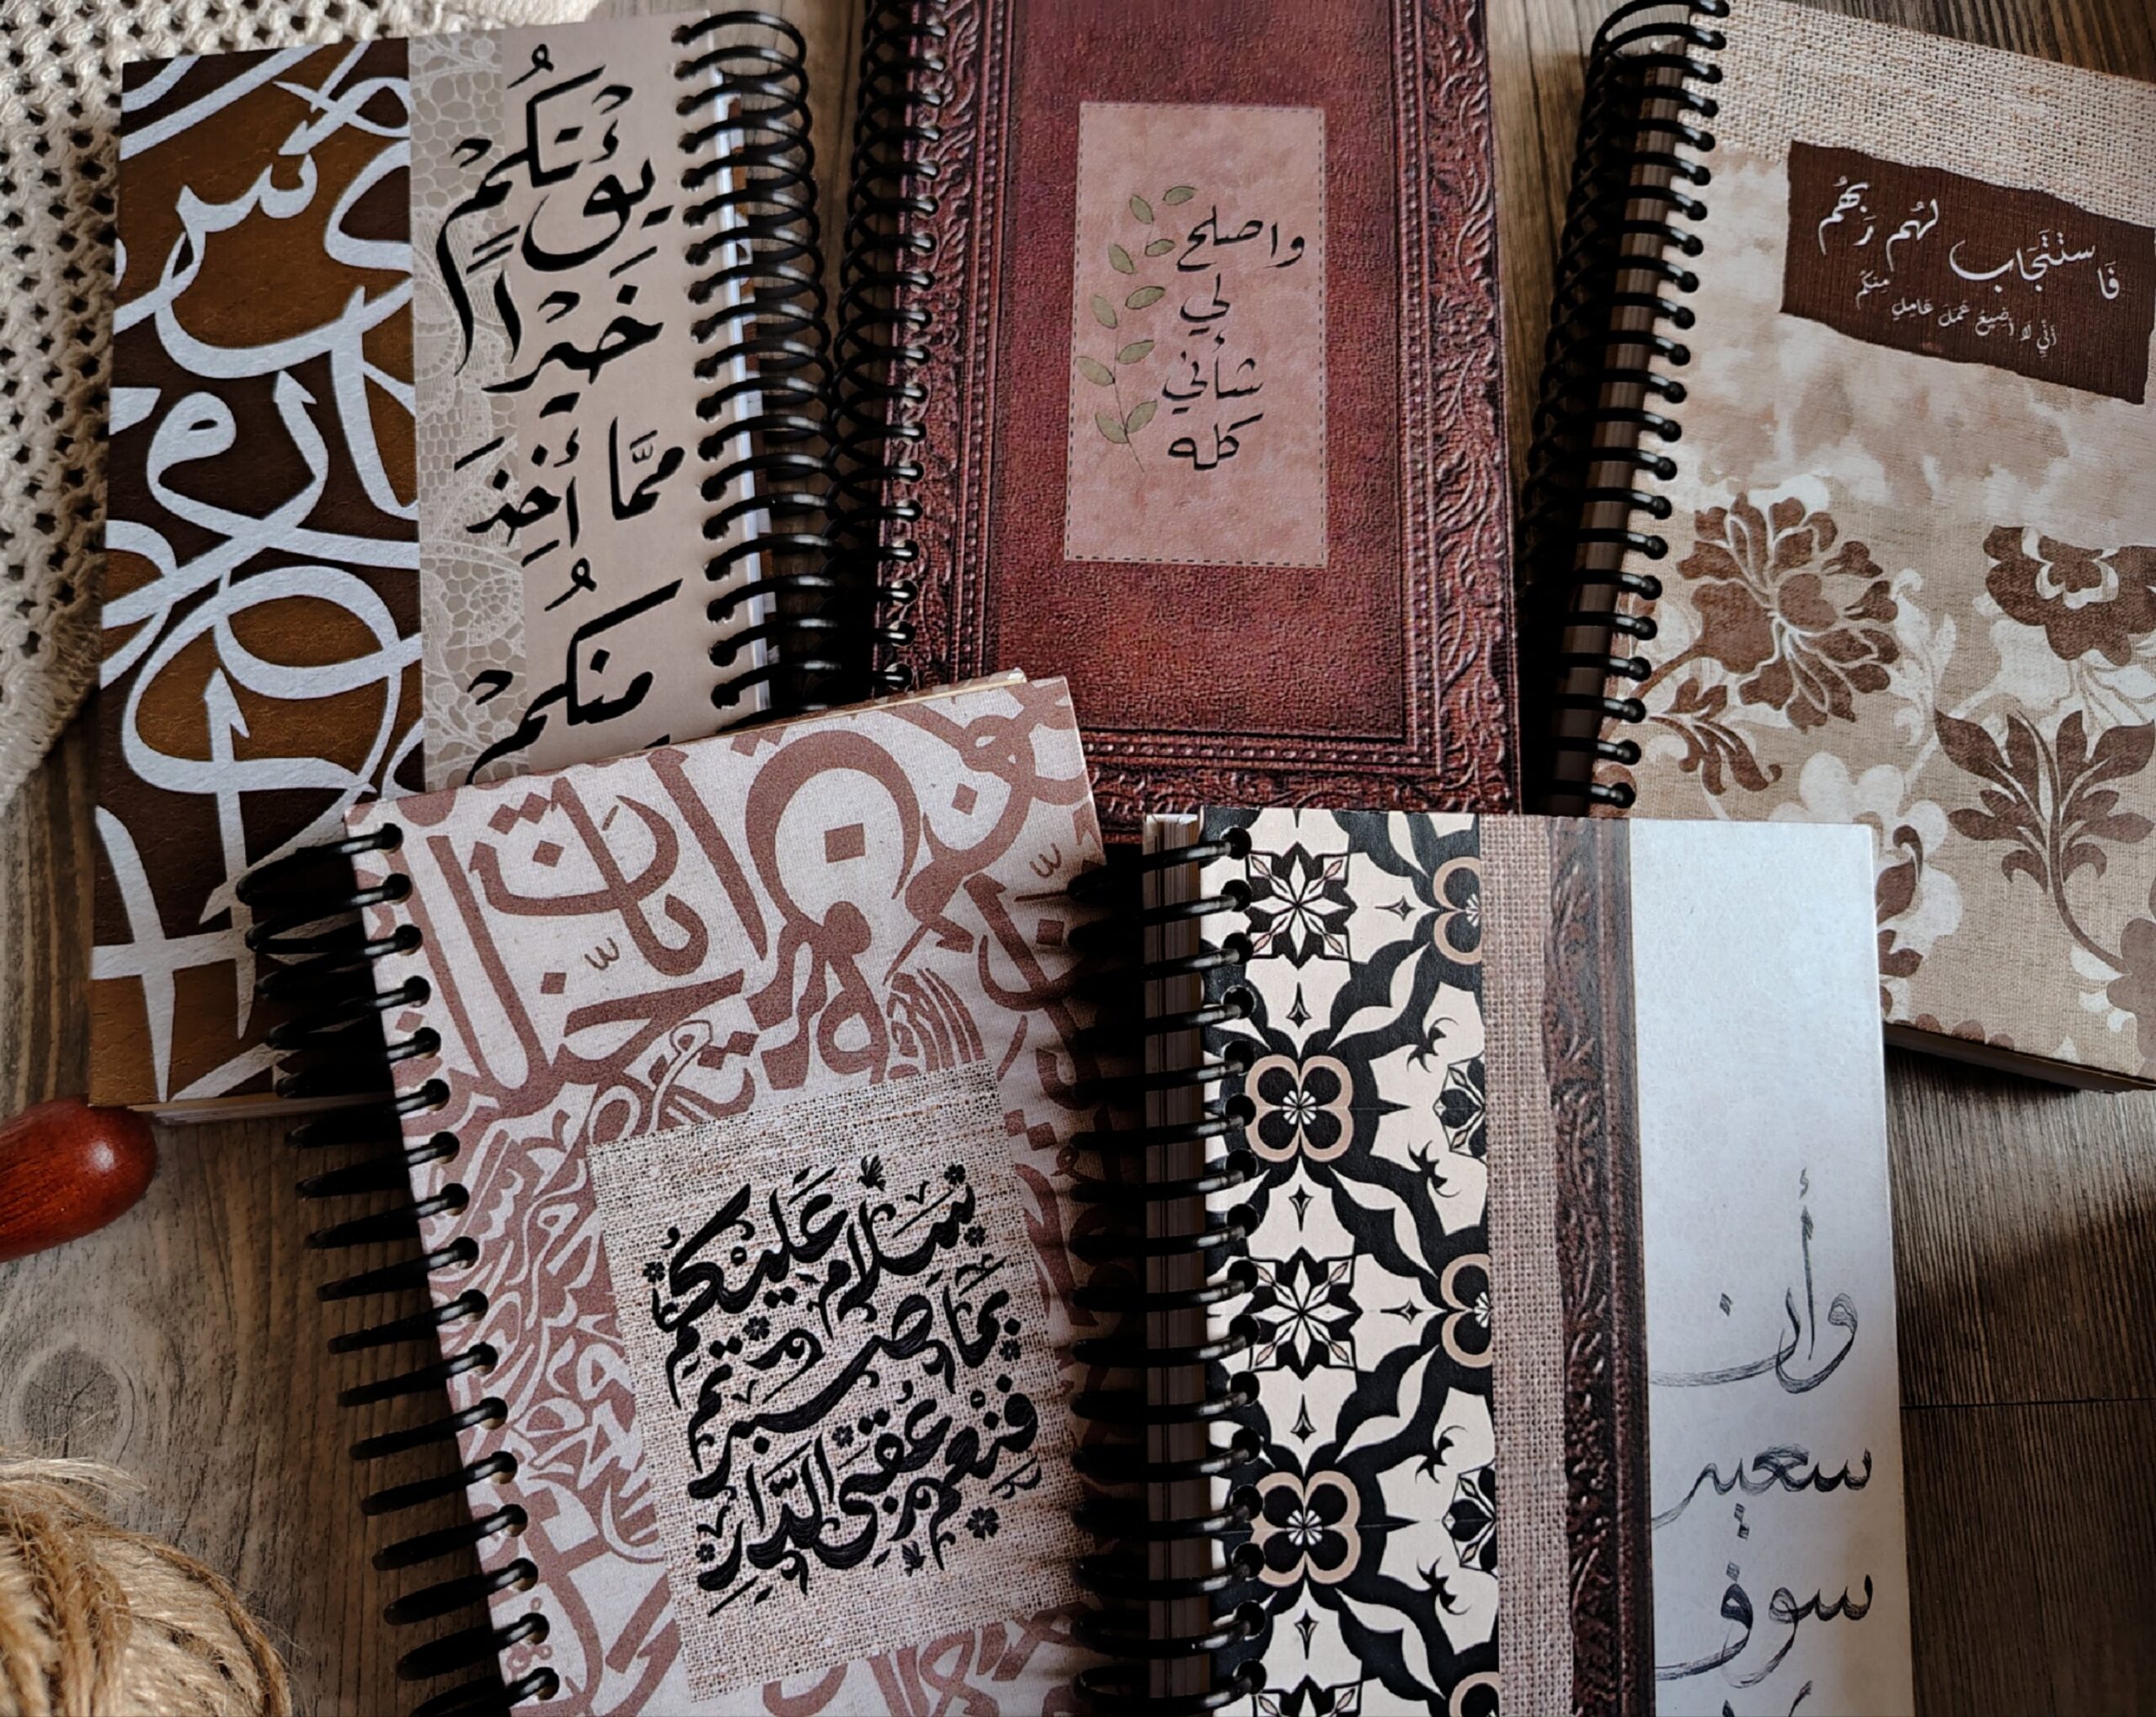 يُؤْتِكُمْ
خَيْرًا
مِّمَّا أُخِذَ
مِنكُمْ
واصلح
لي
شأني
كله
فَاسْتَجَابَ لَهُمْ رَبُّهُمْ
أَنِّي لَا أُضِيعُ عَمَلَ عَامِلٍ مِنكُمْ
سَلَامٌ عَلَيْكُمْ
بِمَا صَبَرْتُمْ
فَنِعْمَ عُقْبَى الدَّارِ
وأن
سعيه
سوف